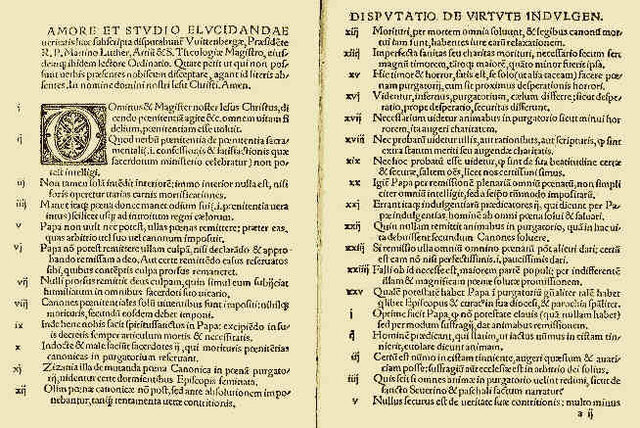 AMORE ET STVDIO ELVCIDANDAE
ueritatis hæc subscripta disputabunť Vuittenbergæ, Præsidēte
R. P. Martino Luther, Artiū & S. Theologiæ Magistro, eius-
demq; ibidem lectore Ordinatio. Quare petit ut qui non pos-
sunt uerbis præsentes nobiscum disceptare, agant id literis ab-
sentes. In nomine domini nostri Iesu Christi. Amen.
i DOminus & Magister noster Iesus Christus, di
cendo pœnitentiā agite &c. omnem uitam fi
delium, pœnitentiam esse uoluit.
ij Quod uerbū pœnitentia de pœnitentia sacra
mentali .i. confessionis & satisfactionis quæ
sacerdotum ministerio celebratur) non po-
test intelligi.
iij Non tamen solā intēdit interiorē: immo interior nulla est, nisi
foris operetur uarias carnis mortificationes.
iiij Manet itaq; pœna donec manet odium sui (.i. pœnitentia uera
intus) scilicet usq; ad introitum regni cælorum.
v Papa non uult nec potest, ullas pœnas remittere: præter eas,
quas arbitrio uel suo uel canonum imposuit.
vj Papa nō potest remittere ullam culpā, nisi declarādo & appro-
bando remissam a deo, Aut certe remittēdo casus reseruatos
sibi, quibus contēptis culpa prorsus remaneret.
vij Nulli prorsus remittit deus culpam, quin simul eum subijciat
humiliatum in omnibus sacerdoti suo uicario.
viij Canones pœnitentiales solū uiuentibus sunt impositi: nihilq;
morituris, secundū eosdem debet imponi.
ix Inde bene nobis facit spiritussanctus in Papa: excipiēdo in su-
is decretis semper articulum mortis & necessitatis.
x Indocte & male faciūt sacerdotes ij, qui morituris pœnitētias
canonicas in purgatorium reseruant.
xj Zizania illa de mutanda pœna Canonica in pœnā purgato-
rij, uidentur certe dormientibus Episcopis seminata.
xij Olim pœnæ canonicæ nō post, sed ante absolutionem impo-
nebantur, tanq̃ tentamenta ueræ contritionis.
DISPVTATIO. DE VIRTVTE INDVLGEN.
xiij Morituri, per mortem omnia soluunt, & legibus canonū mor-
tui iam sunt, habentes iure earū relaxationem.
xiiij Imperfecta sanitas seu charitas morituri, necessario secum fert
magnū timorem, tātoq; maiorē, quāto minor fuerit ipsa.
xv Hic timor & horror, satis est, se solo (ut alia taceam) facere pœ-
nam purgatorij, cum sit proximus desperationis horrori.
xvj Videntur, infernus, purgatorium, cælum differre; sicut despe-
ratio, prope desperatio, securitas differunt.
xvij Necessarium uidetur animabus in purgatorio sicut minui hor-
rorem, ita augeri charitatem.
xviij Nec probatū uidetur ullis, aut rationibus, aut scripturis, q̃ sint
extra statum meriti seu augendæ charitatis.
xix Nec hoc probatū esse uidetur, q̃ sint de sua beatitudine certæ
& securæ, saltem oēs, licet nos certissimi simus.
xx Igit̃ Papa per remissionē plenariā omniū pœnarū, non simpli
citer omniū intelligit, sed a seipō tm̄modo impositarū.
xxj Errant itaq; indulgentiarū prædicatores ij, qui dicunt per Pa-
pæ indulgentias, hominē ab omni pœna solui & saluari.
xxij Quin nullam remittit animabus in purgatorio, quā in hac ui-
ta debuissent secundum Canones soluere.
xxiij Si remissio ulla omniū omnino pœnarū pōt alicui dari; certū
est eam nō nisi perfectissimis .i. paucissimis dari.
xxiiij Falli ob id necesse est, maiorem partē populi; per indifferentē
illam & magnificam pœnæ solutæ promissionem.
xxv Qualē potestatē habet Papa ī purgatoriū gñaliter talē habet
q̃libet Episcopus & curatus in sua diœcesi, & parochia spālitẽr.
i Optime facit Papa, q̃ nō potestate clauis (quā nullam habet)
sed per modum suffragij, dat animabus remissionem.
ij Hominē prædicant, qui statim, ut iactus nūmus in cistam tin-
nierit, euolare dicunt animam.
iij Certū est nūmo in cistam tinniente, augeri quæstum & auarit-
ciam posse: suffragiū aūt ecclesiæ est in arbitrio dei solius.
iiij Quis scit si omnes animæ in purgatorio uelint redimi, sicut de
sancto Seuerino & paschali factum narratur.
v Nullus securus est de ueritate suæ contritionis: multo minus
a ij